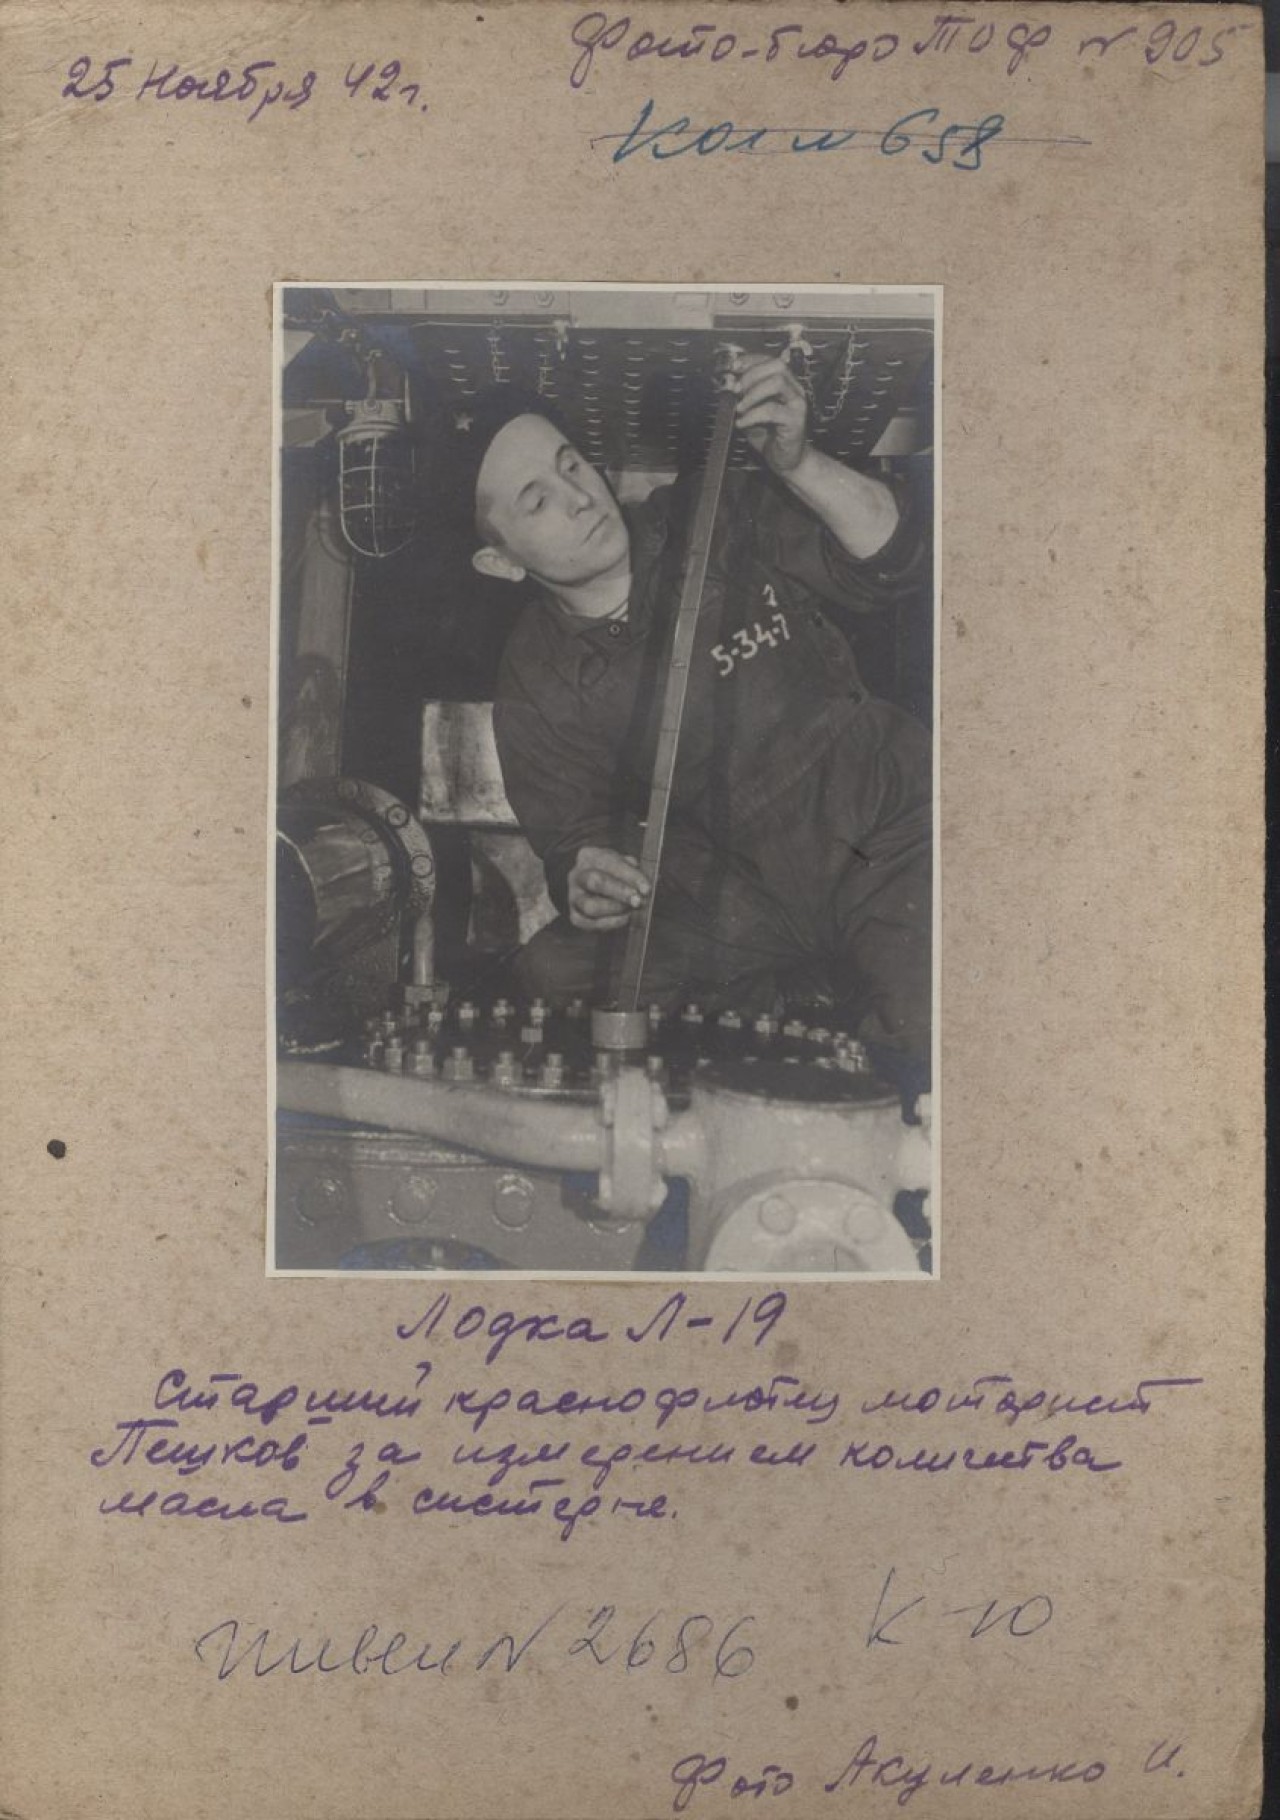 25 Ноября 42 г.
Фото-бюро ТОФ № 905
658
5-34-7
Лодка Л-19
Старший краснофлотец моторист
Пешков за измерением количества
масла в систерне.
№ 2686
К-10
Фото Акуленко И.